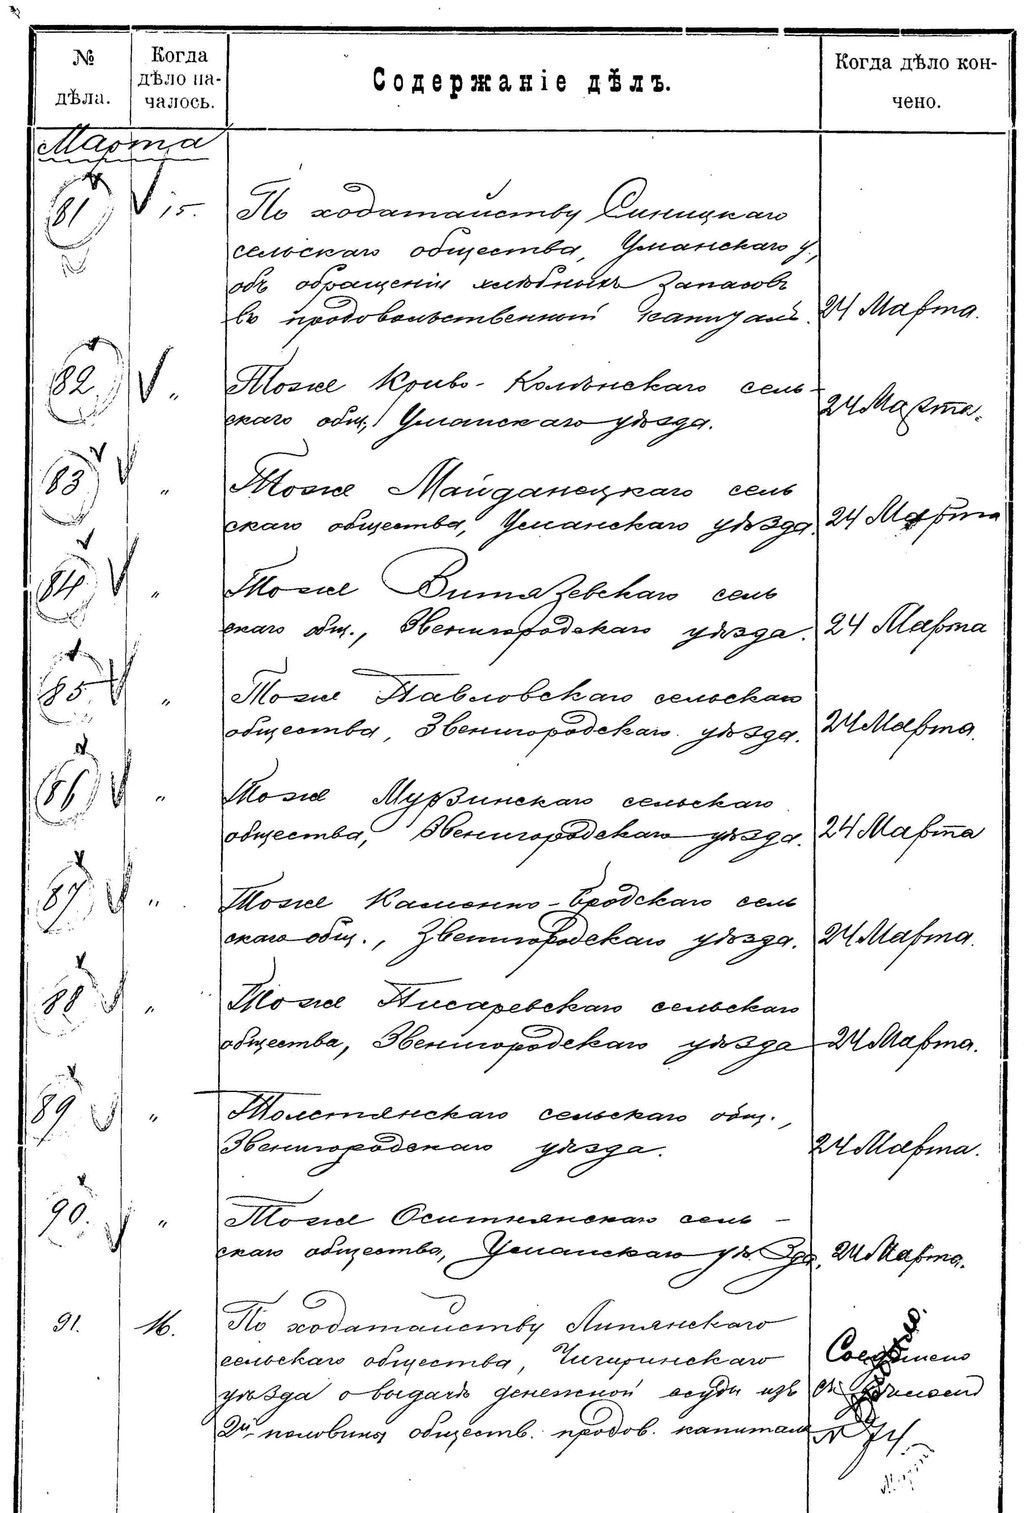 № дѣла.
Когда дѣло на-
чалось.
Содержаніе дѣлъ.
Когда дѣло кон-
чено.
Марта
81 15. По ходатайству Синицкаго
сельскаго общества, Уманскаго у.,
объ обращеніи хлѣбныхъ запасовъ
въ продовольственный капиталъ. 24 Марта.
82 " Тоже Криво-Колѣнскаго сель-
скаго общ., Уманскаго уѣзда. 24 Марта.
83 " Тоже Майданецкаго сель
скаго общества, Уманскаго уѣзда. 24 Марта
84 " Тоже Витязевскаго сель
скаго общ., Звенигородскаго уѣзда. 24 Марта
85 " Тоже Павловскаго сельскаго
общества, Звенигородскаго уѣзда. 24 Марта.
86 " Тоже Мурзинскаго сельскаго
общества, Звенигородскаго уѣзда. 24 Марта
87 " Тоже Каменно-Бродскаго сель
скаго общ., Звенигородскаго уѣзда. 24 Марта.
88 " Тоже Писаревскаго сельскаго
общества, Звенигородскаго уѣзда 24 Марта.
89 " Толстянскаго сельскаго общ.,
Звенигородскаго уѣзда. 24 Марта.
90. " Тоже Оситнянскаго сель-
скаго общества, Уманскаго уѣзда. 24 Марта.
91. 16. По ходатайству Липянскаго
сельскаго общества, Чигиринскаго
уѣзда о выдачѣ денежной ссуды изъ
2й половины обществ. продов. капитала
Соединено
съ
№ 74.